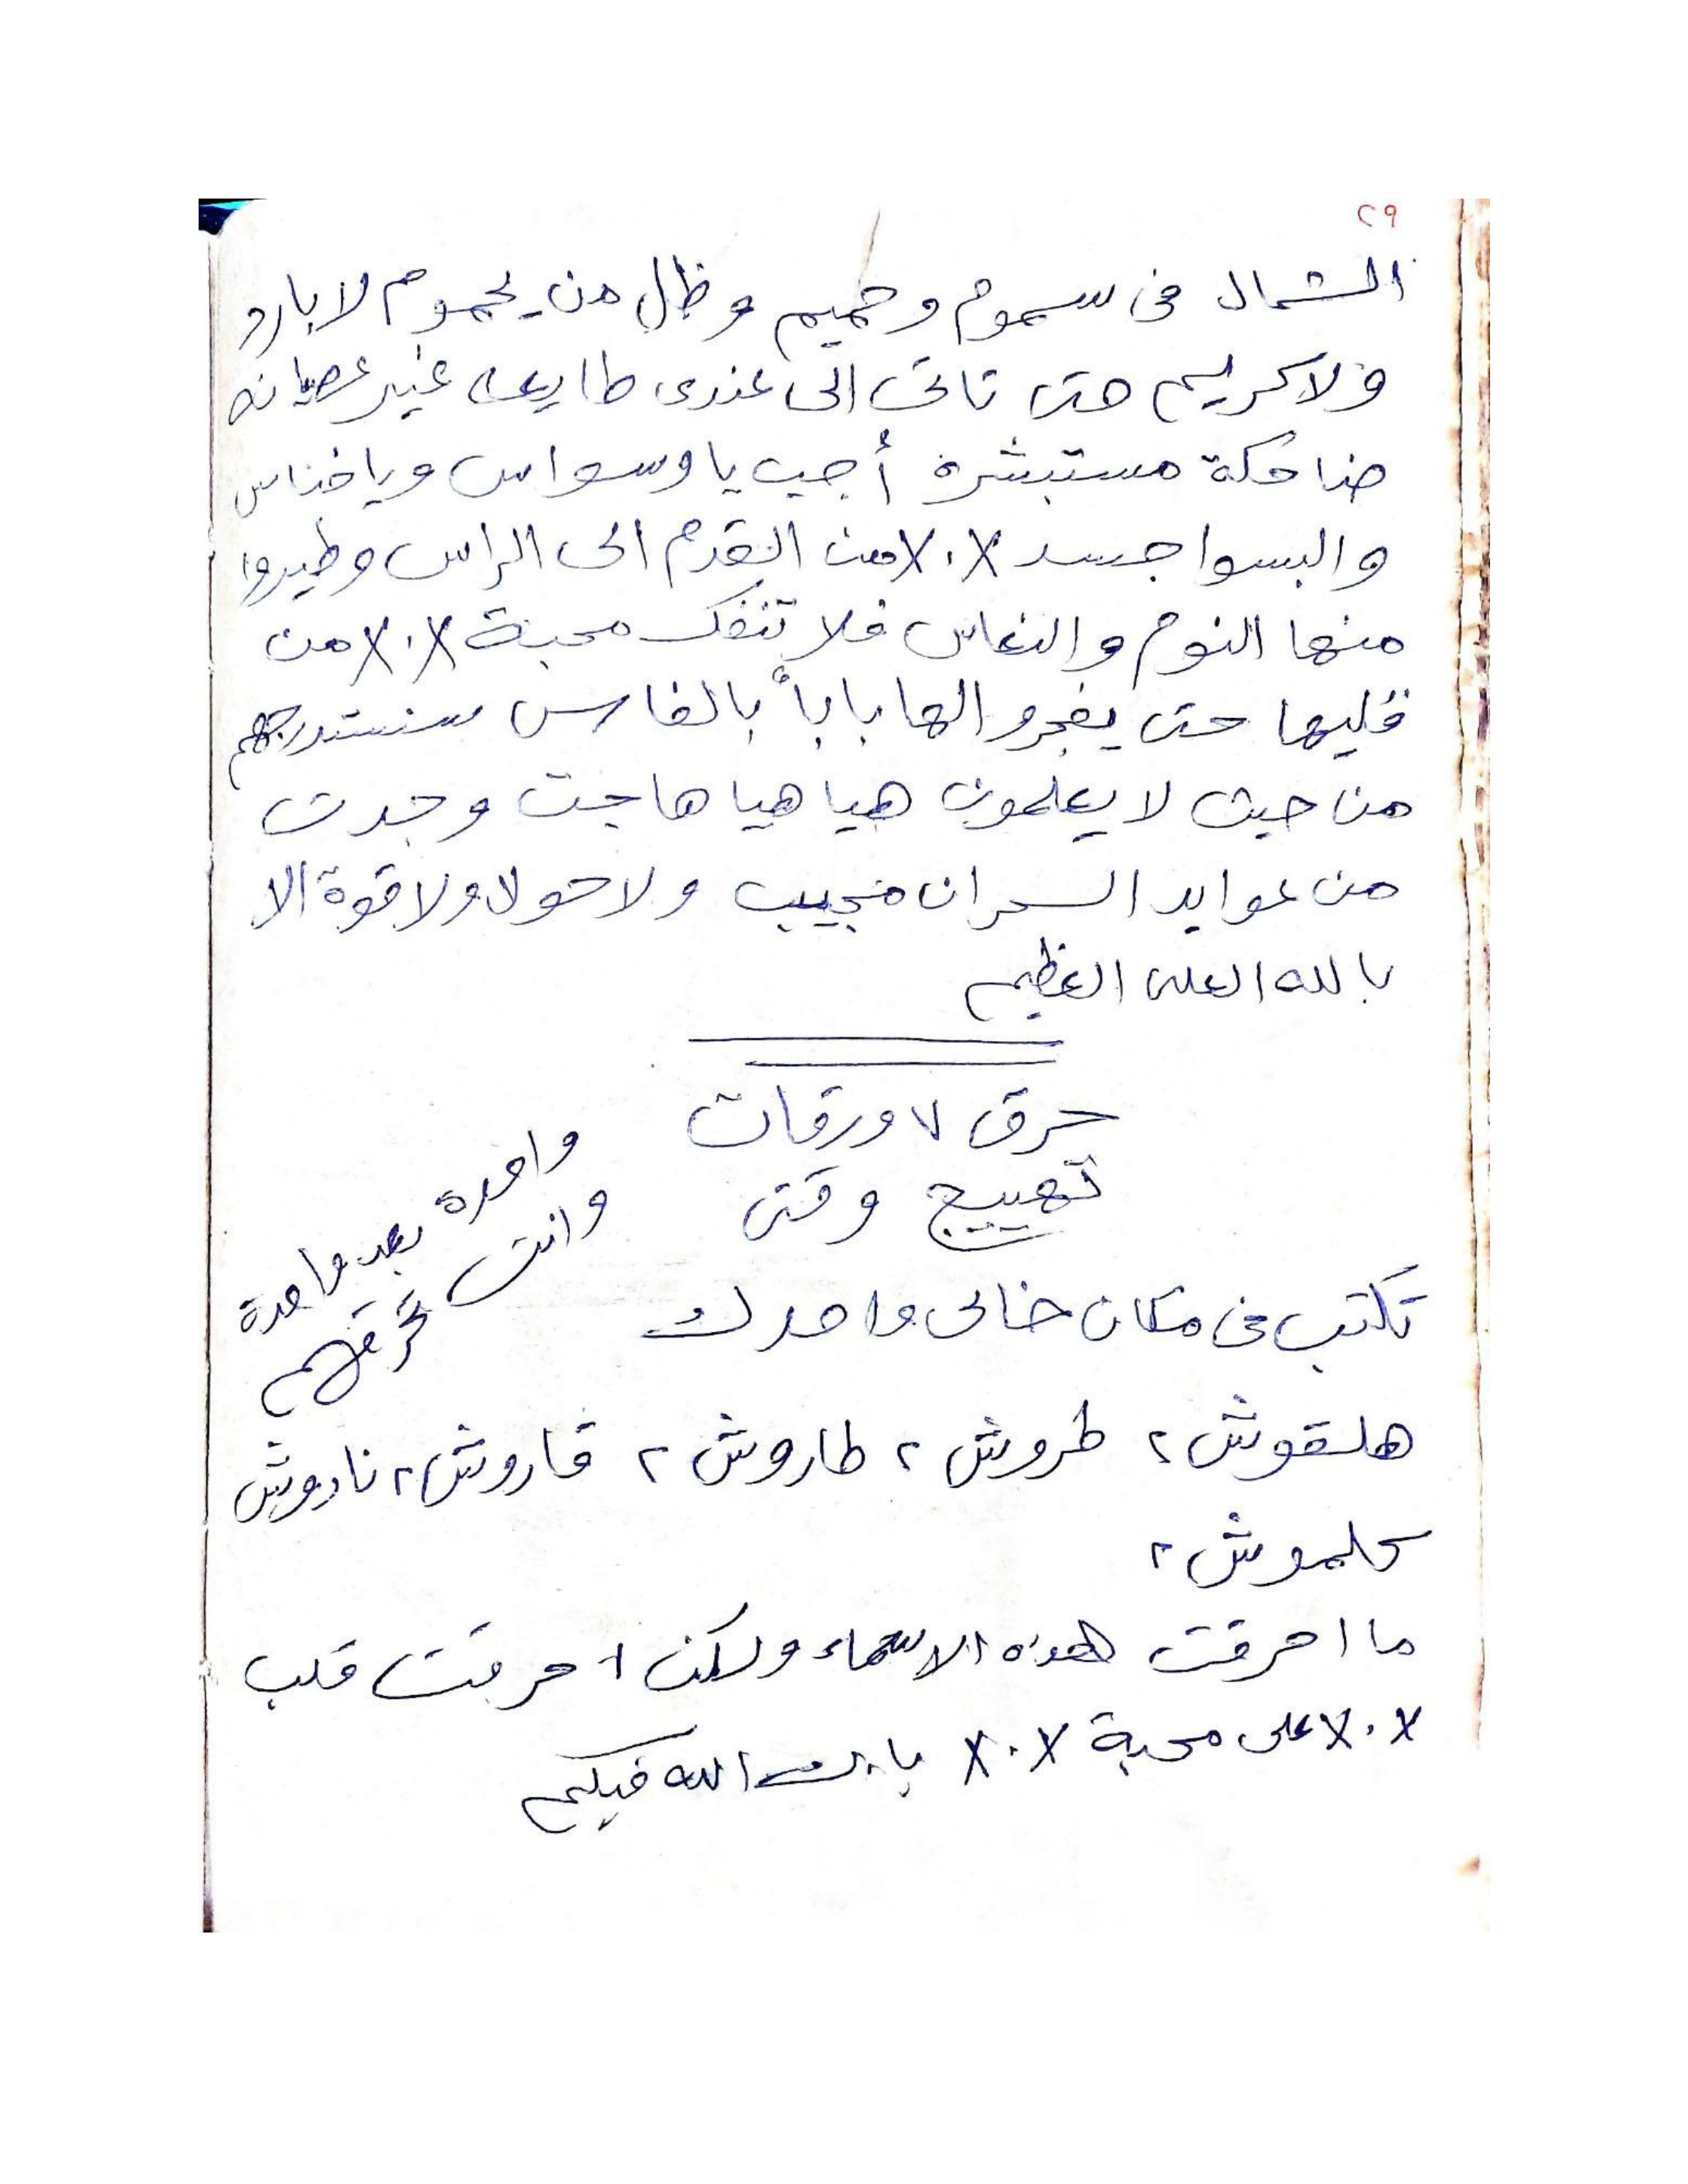 ٢٩
الشمال فى سموم وحميم وظل من يحموم لا بارد
ولا كريم حتى تاتى الى عندى طايعه غير عصيانه
ضاحكة مستبشرة أجيب يا وسواس ويا خناس
والبسوا جسد X.X من القدم الى الراس وطيروا
منها النوم والنعاس فلا تنفك محبة X.X من
قليها حتى يفجروالها باباً بالفاس سنستدرجهم
من حيث لا يعلمون هيا هيا هاجت وجدت
من عوايد السحران مجيب ولا حول ولا قوة الا
بالله العلى العظيم
حرق ٧ ورقات
تهييج وقتى
واحدة بعد واحدة
وانت تحرقهم
تكتب فى مكان خالى واحدك
هلقوش ٢ طروش ٢ طاروش ٢ قاروش ٢ نادوش
حلموش ٢
ما احرقت هذه الاسماء ولكن احرقت قلب
X.X على محبة X.X بارك الله فيكم